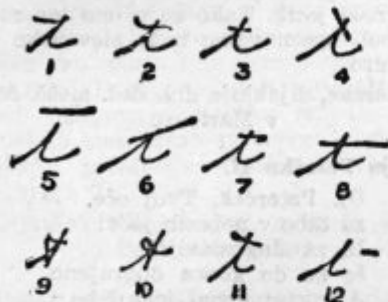 t t t t
1 2 3 4
t t t t
5 6 7 8
t t t t
9 10 11 12